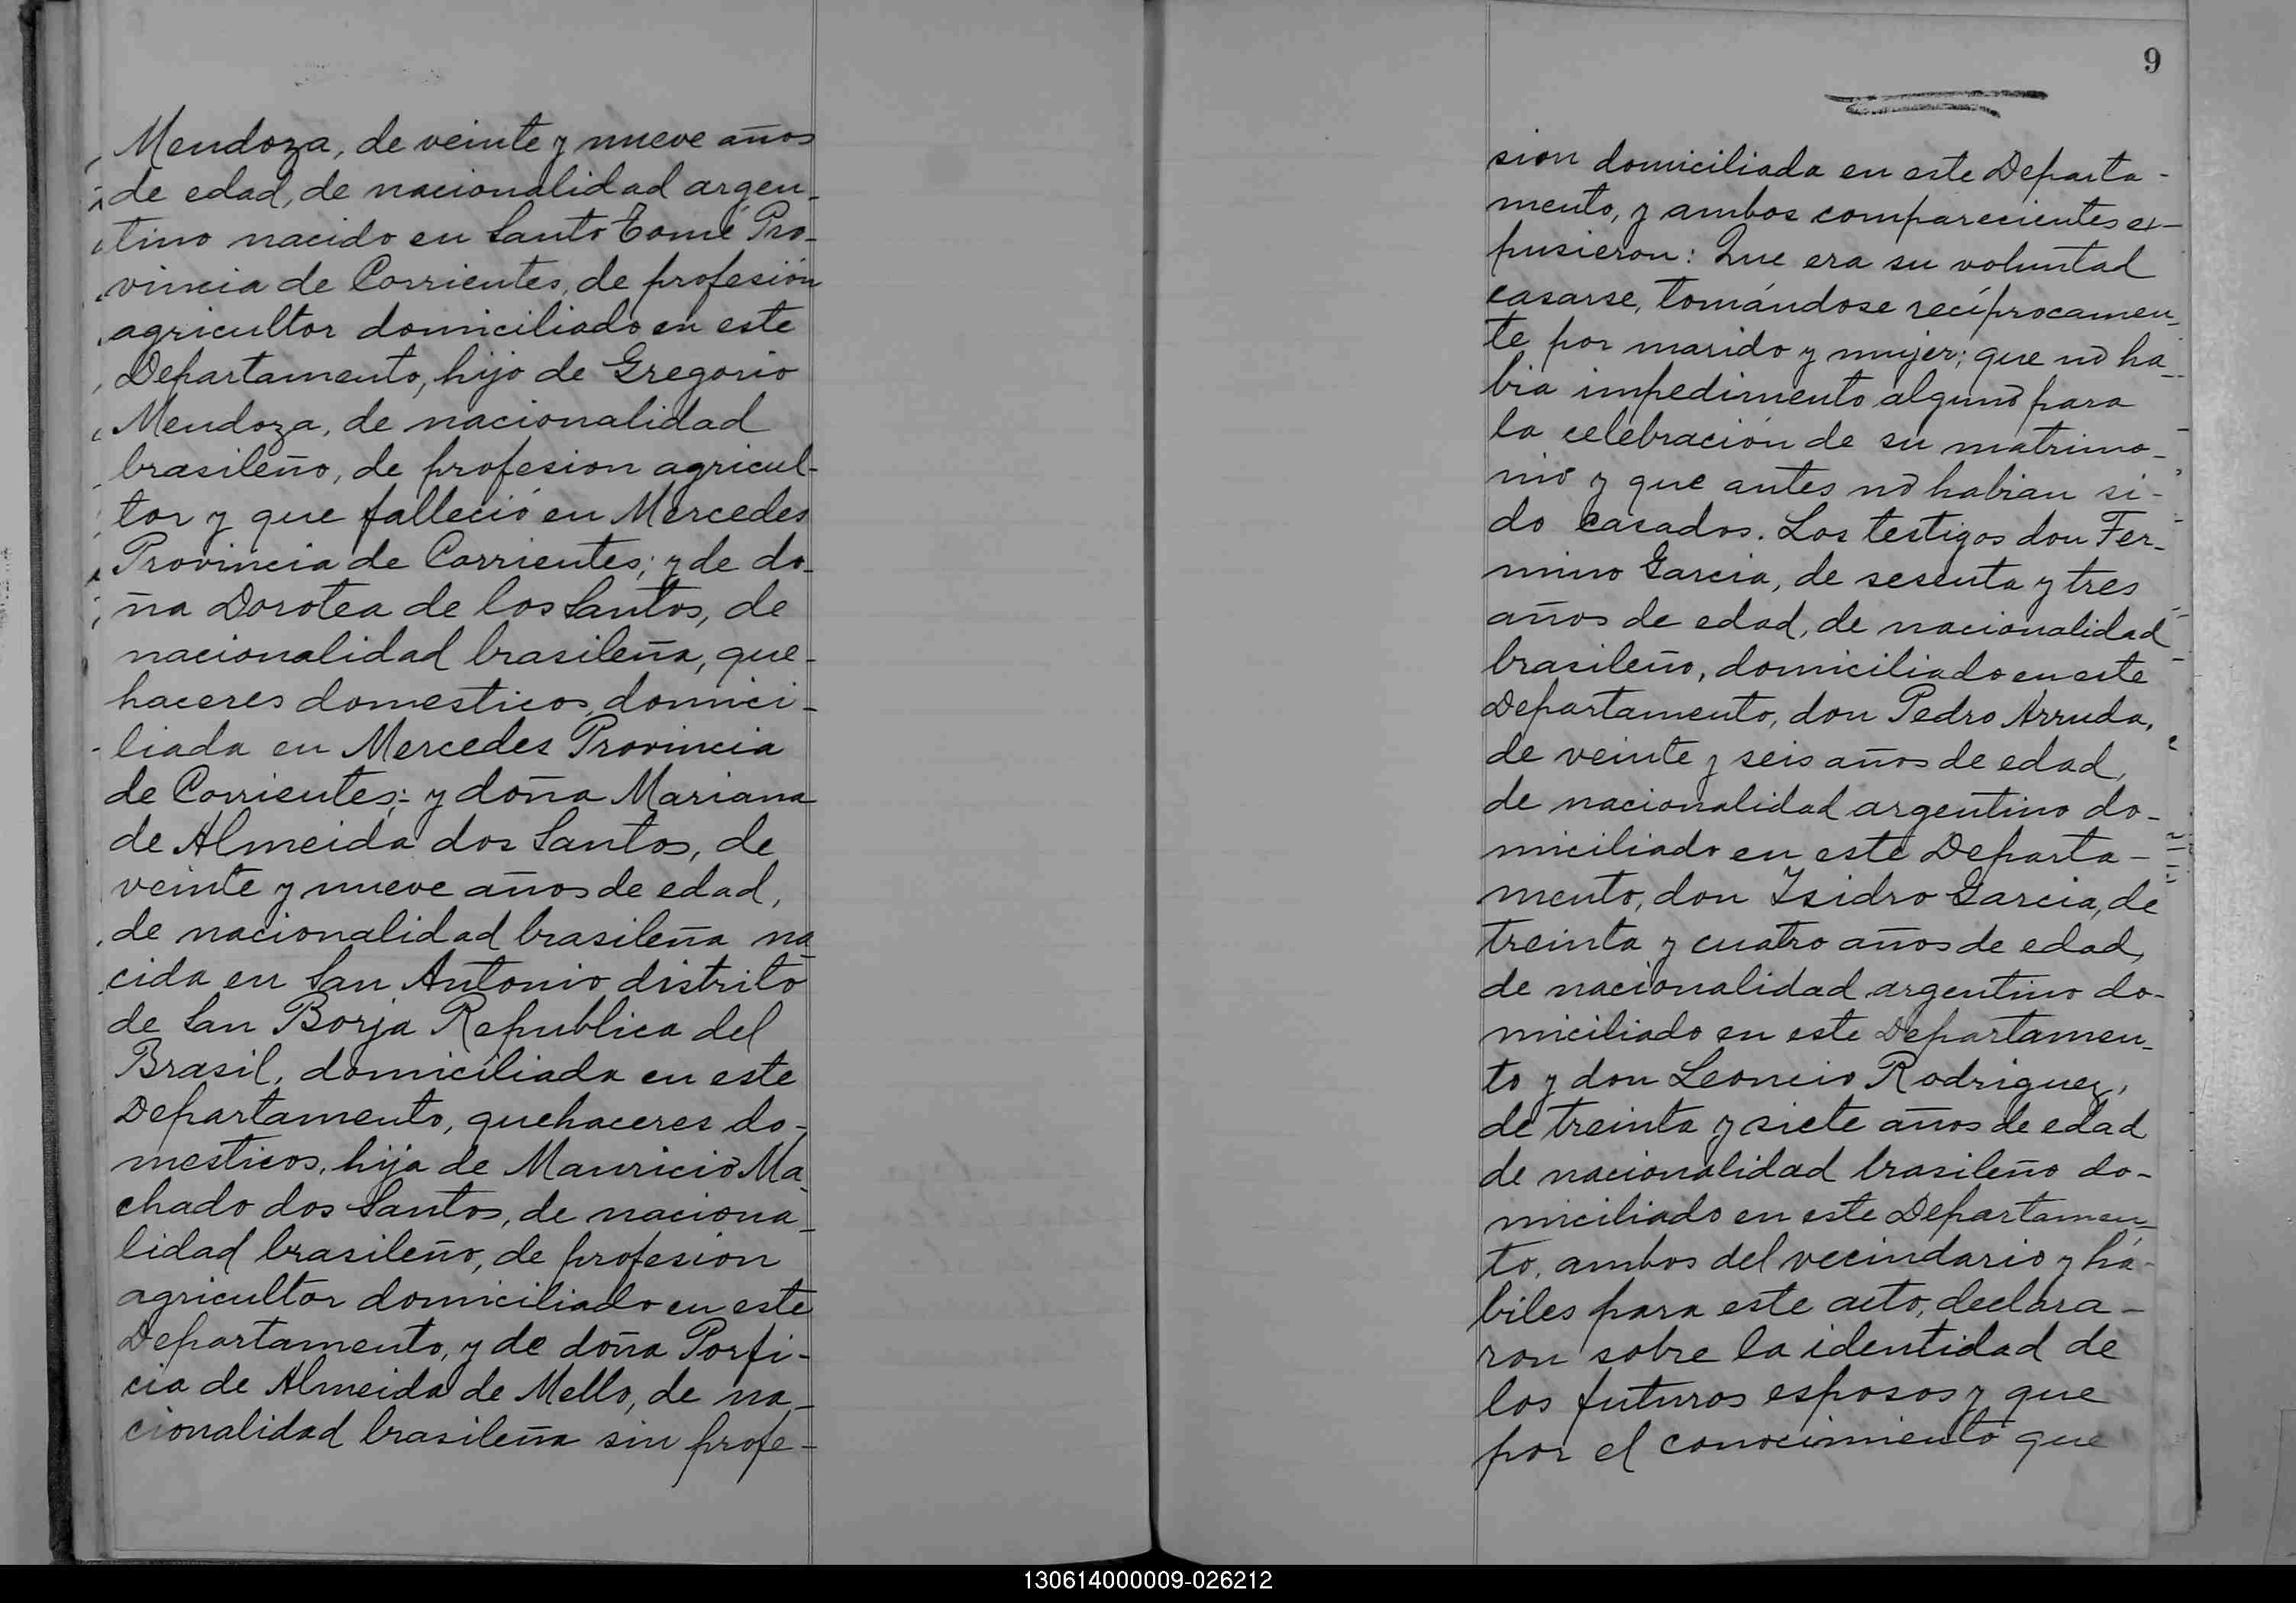 Mendoza, de veinte y nueve años
de edad, de nacionalidad argen-
tino nacido en Santo Tomé Pro-
vincia de Corrientes, de profesión
agricultor domiciliado en este
Departamento, hijo de Gregorio
Mendoza, de nacionalidad
brasileño, de profesion agricul-
tor y que falleció en Mercedes
Provincia de Corrientes; y de do-
ña Dorotea de los Santos, de
nacionalidad brasileña, que-
haceres domesticos, domici-
liada en Mercedes Provincia
de Corrientes; y doña Mariana
de Almeida dos Santos, de
veinte y nueve años de edad,
de nacionalidad brasileña na
cida en San Antonio distrito
de San Borja Republica del
Brasil, domiciliada en este
Departamento, quehaceres do-
mesticos, hija de Mauricio Ma-
chado dos Santos, de naciona-
lidad brasileño, de profesion
agricultor domiciliado en este
Departamento, y de doña Porfi-
cia de Almeida de Mello, de na-
cionalidad brasileña sin profe-
9
sion domiciliada en este Departa-
mento, y ambos comparecientes ex-
pusieron: Que era su voluntad
casarse, tomándose recíprocamen-
te por marido y mujer; que no ha-
bia impedimento alguno para
la celebración de su matrimo-
nio y que antes no habian si-
do casados. Los testigos don Fer-
mino Garcia, de sesenta y tres
años de edad, de nacionalidad
brasileño, domiciliado en este
Departamento, don Pedro Arruda,
de veinte y seis años de edad,
de nacionalidad argentino do-
miciliado en este Departa-
mento, don Isidro Garcia, de
treinta y cuatro años de edad,
de nacionalidad argentino do-
miciliado en este Departamen-
to y don Leoncio Rodriguez,
de treinta y siete años de edad
de nacionalidad brasileño do-
miciliado en este Departamen-
to, ambos del vecindario y há-
biles para este acto, declara-
ron sobre la identidad de
los futuros esposos y que
por el conocimiento que
130614000009-026212